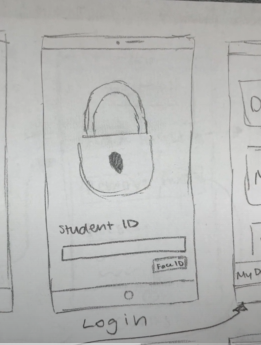 Student ID
Face ID
Login
My D